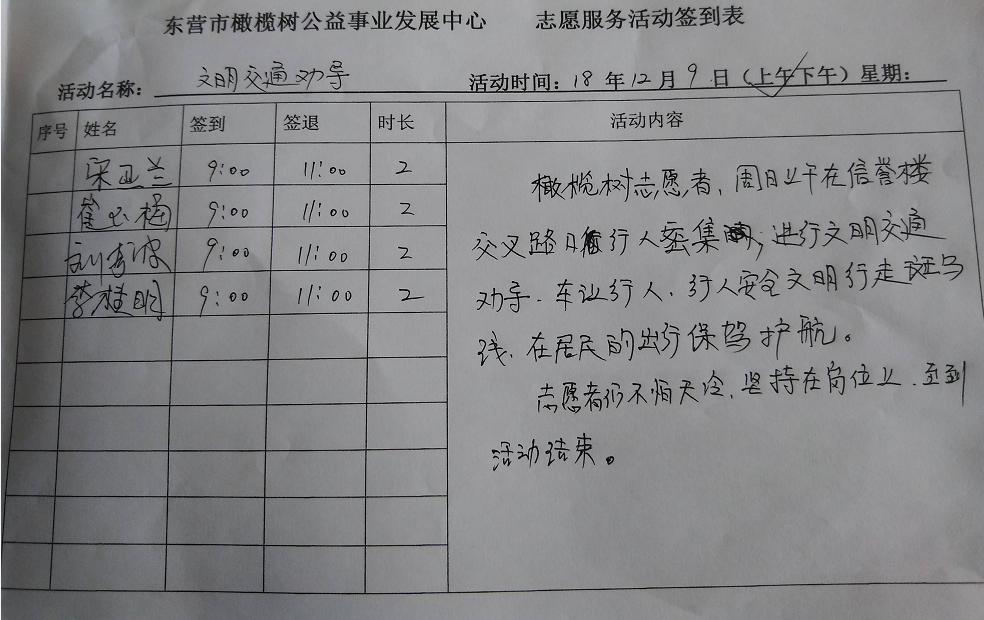 东营市橄榄树公益事业发展中心 志愿服务活动签到表
活动名称: 文明交通劝导 活动时间: 18 年 12 月 9 日(上午下午)星期:
序号 姓名 签到 签退 时长 活动内容
宋亚兰 9:00 11:00 2
崔 梅 9:00 11:00 2
刘 波 9:00 11:00 2
李桂明 9:00 11:00 2
橄榄树志愿者,周日上午在信誉楼
交叉路口 行人密集 ,进行文明交通
劝导.车让行人,行人安全文明行走斑马
线,在居民的出行保驾护航。
志愿者们不怕天冷,坚持在岗位上,至到
活动结束。